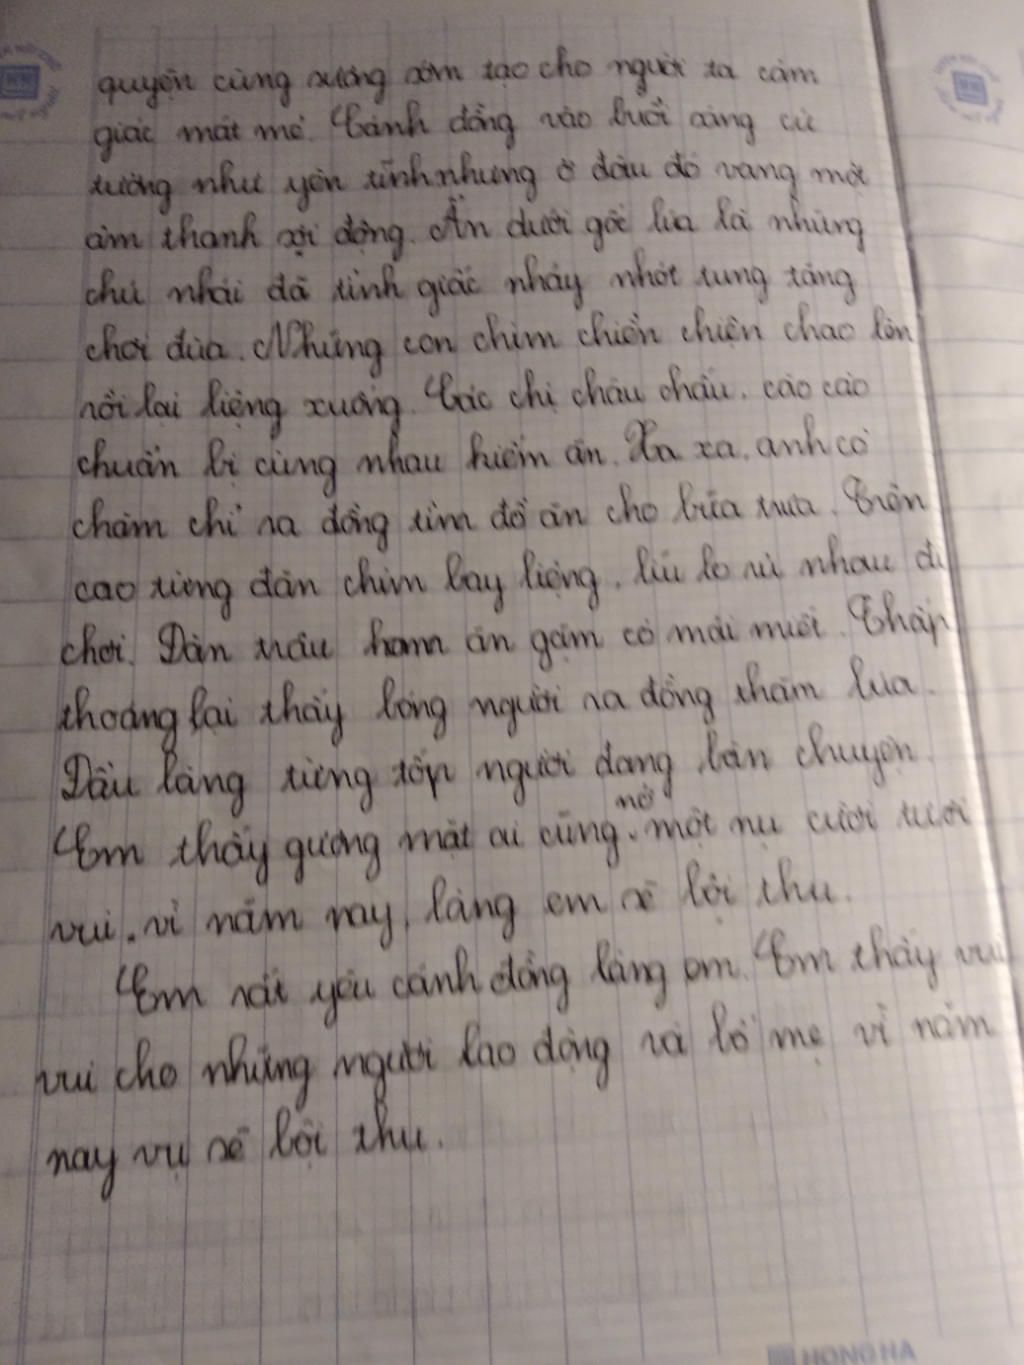 quyện cùng sương sớm tạo cho người ta cảm
giác mát mẻ. Cánh đồng vào buổi sáng cứ
tưởng như yên tĩnh nhưng ở đâu đó vang một
âm thanh sôi động. Ẩn dưới gốc lúa là những
chú nhái đã tỉnh giấc nhảy nhót tung tăng
chơi đùa. Những con chim chiền chiện chao lên
rồi lại liệng xuống. Các chị châu chấu, cào cào
chuẩn bị cùng nhau kiếm ăn. Xa xa, anh cò
chăm chỉ ra đồng tìm đồ ăn cho bữa trưa. Trên
cao từng đàn chim bay liệng, líu lo rủ nhau đi
chơi. Đàn trâu ham ăn gặm cỏ mải miết. Thấp
thoáng lại thấy bóng người ra đồng thăm lúa.
Đầu làng từng tốp người đang bàn chuyện.
Em thấy gương mặt ai cũng nở một nụ cười tươi
vui. vì năm nay, làng em sẽ bội thu.
Em rất yêu cánh đồng làng em. Em thấy vui
vui cho những người lao động và bố mẹ vì năm
nay vụ sẽ bội thu.
HONG HA